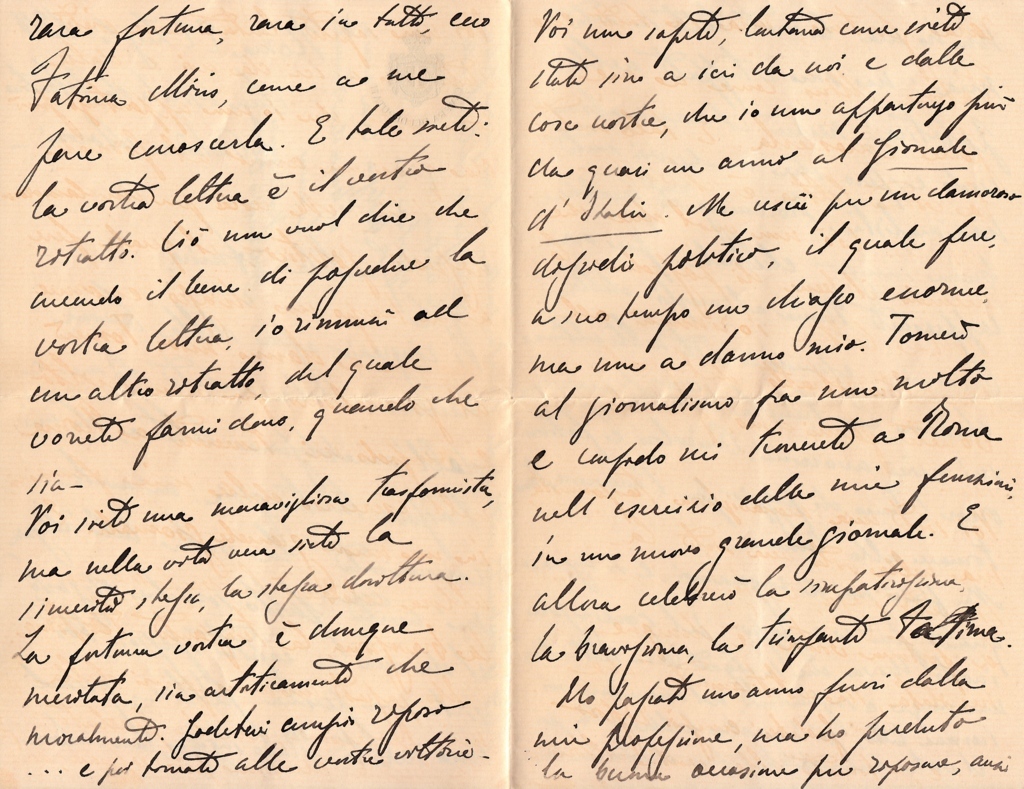 rara fortuna, rara in tutto, ecco
Fatima Miris, come a me
pare conoscerla. E tale siete:
la vostra lettera è il vostro
ritratto. Ciò non vuol dire che
avendo il bene di possedere la
vostra lettera, io rinunci ad
un altro ritratto, del quale
vorrete farmi dono, quando che
sia -
Voi siete una meravigliosa trasformista,
ma nella vita vera siete la
sincerità stessa, la stessa dirittura.
La fortuna vostra è dunque
meritata, sia artisticamente che
moralmente. Godetevi ampio riposo
... e poi tornate alle vostre vittorie -
Voi non sapete, lontana come siete
stata sino a ieri da noi e dalle
cose nostre, che io non appartengo più
da quasi un anno al Giornale
d'Italia. Me uscii per un clamoroso
dissidio politico, il quale fece,
a suo tempo un chiasso enorme,
ma non a danno mio. Tornerò
al giornalismo fra non molto
e credo mi troverete a Roma
nell'esercizio delle mie funzioni,
in un nuovo grande giornale. E
allora celebrerò la simpaticissima,
la bravissima, la trionfante Fatima.
Ho passato un anno fuori dalla
mia professione, ma ho perduto
la buona occasione per riposare, anzi